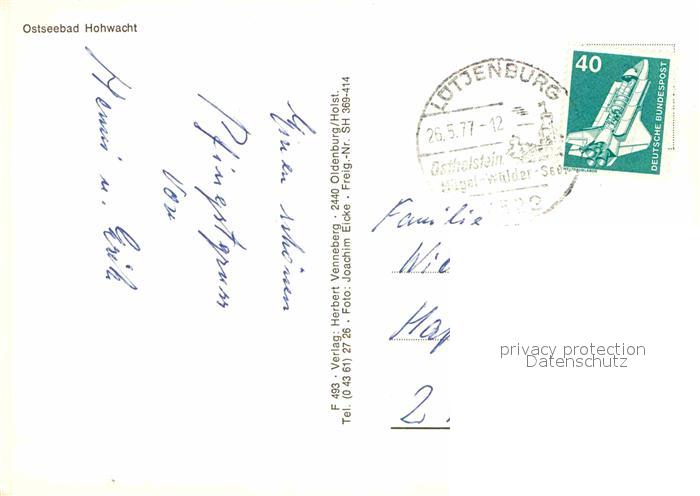 Ostseebad Hohwacht
Einen schönen
Pfingstgruss
von
u.
F 493 · Verlag: Herbert Venneberg · 2440 Oldenburg/Holst.
Tel. (0 43 61) 27 26 · Foto: Joachim Eicke · Freig.-Nr. SH 369-414
LÜTJENBURG
26.5.77-12
Ostholstein
Hügel-Wälder-See
40
DEUTSCHE BUNDESPOST
Familie
Wie
Hap
2.
privacy protection
Datenschutz